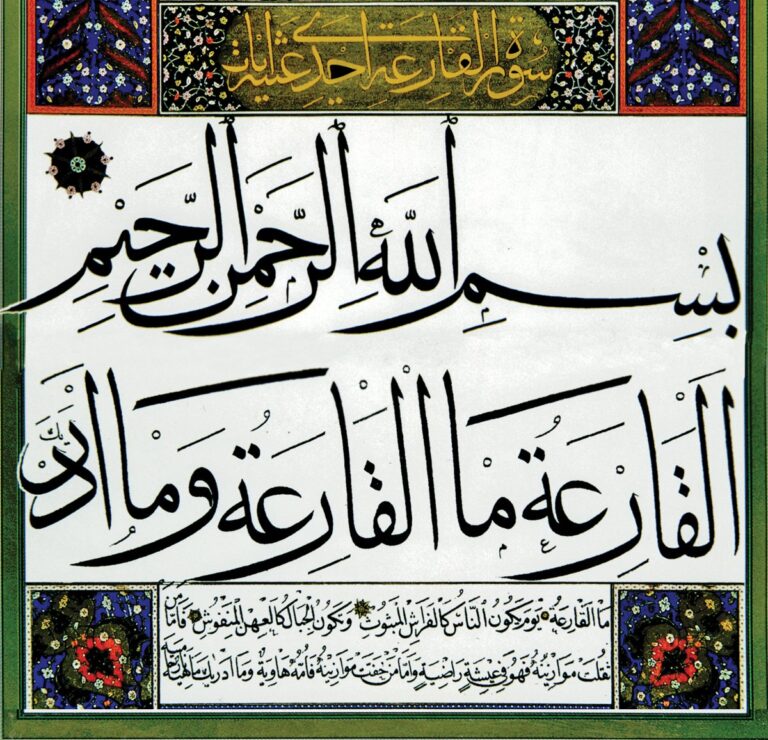 سورة القارعة احدى عشرة ايات
بِسْمِ اللَّهِ الرَّحْمٰنِ الرَّحِيمِ
اَلْقَارِعَةُ مَا الْقَارِعَةُ وَمَا ادريك
ما القارعة يوم يكون الناس كالفراش المبثوث وتكون الجبال كالعهن المنفوش فاما من
ثقلت موازينه فهو في عيشة راضية واما من خفت موازينه فامه هاوية وما ادريك ماهيه